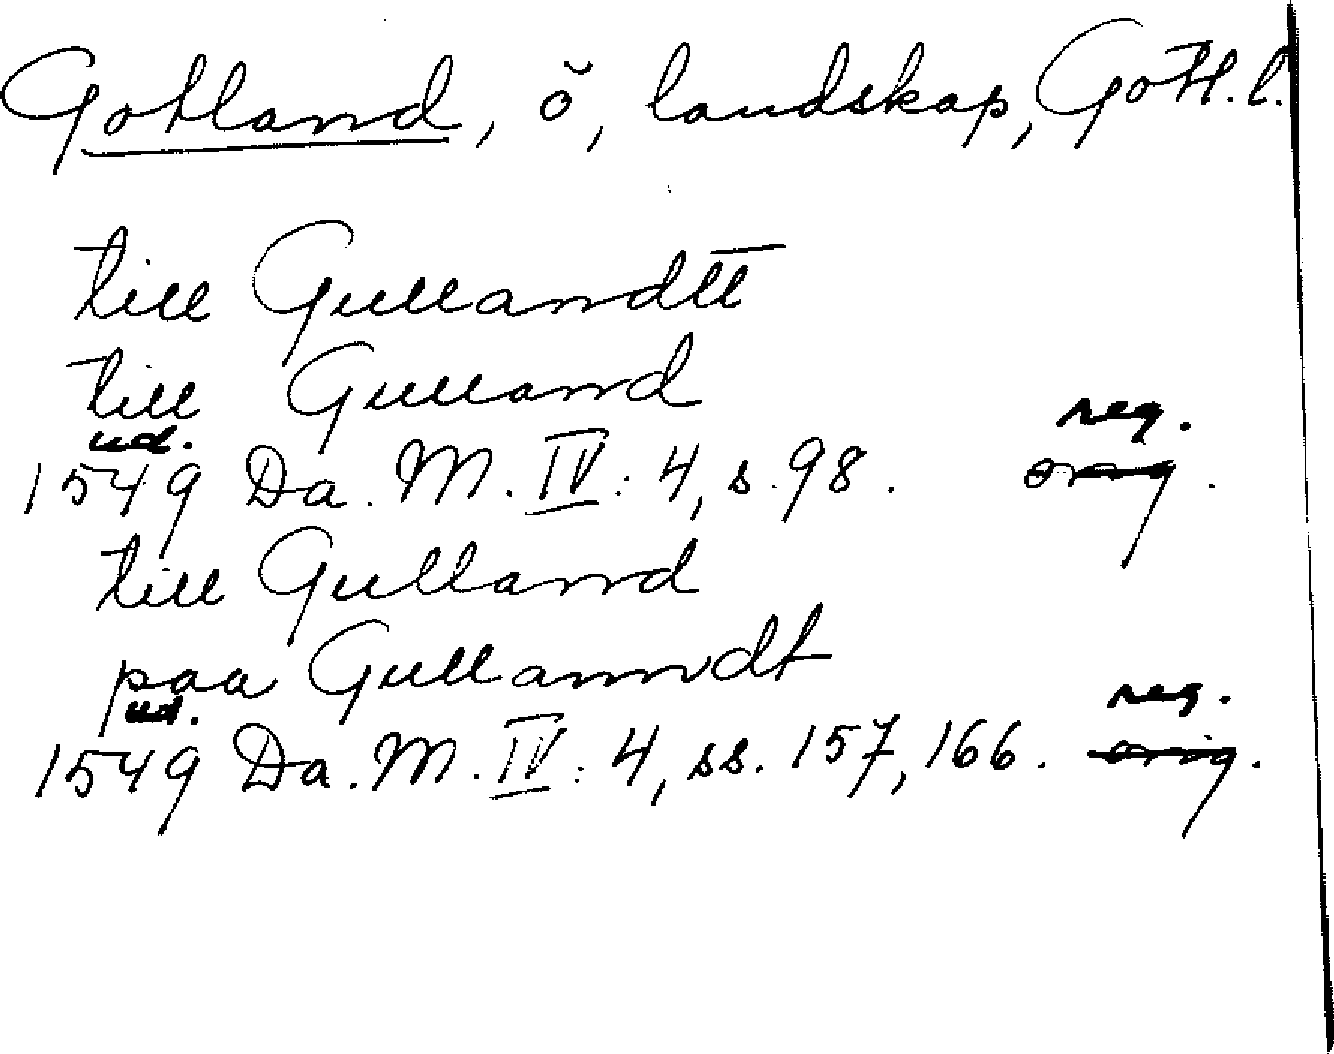 Gotland, ö, landskap, Gotl. l.
till Gullandtt
till Gulland
ud. reg.
1549 Da. M. IV: 4, s. 98. orig.
till Gulland
paa Gullanndt
ud. reg.
1549 Da. M. IV: 4, ss. 157, 166. orig.